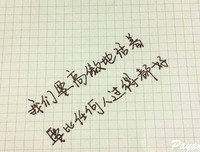 我们要高傲地活着
要比任何人过得都好
Paya